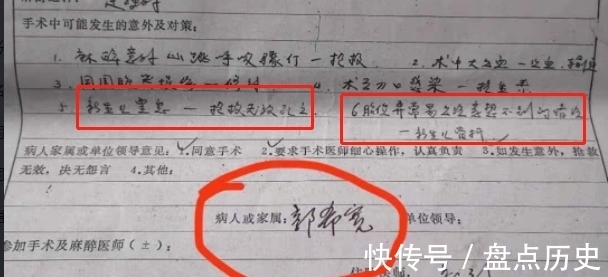 手术中可能发生的意外及对策:
1. 麻醉意外 心跳呼吸骤停一抢救 2. 术中大出血一止血、输血
3. 周围脏器损伤一修补 4. 术后切口感染一抗生素
5. 新生儿窒息 一 抢救无效死亡 6胎位异常
一新生儿骨折
病人家属或单位领导意见:1.同意手术 2.要求手术医师细心操作,认真负责 3.如发生意外,抢救
无效,决无怨言 4.其他:
病人或家属:郭希宽 单位领导:
参加手术及麻醉医师(±):
快传号/盘点历史